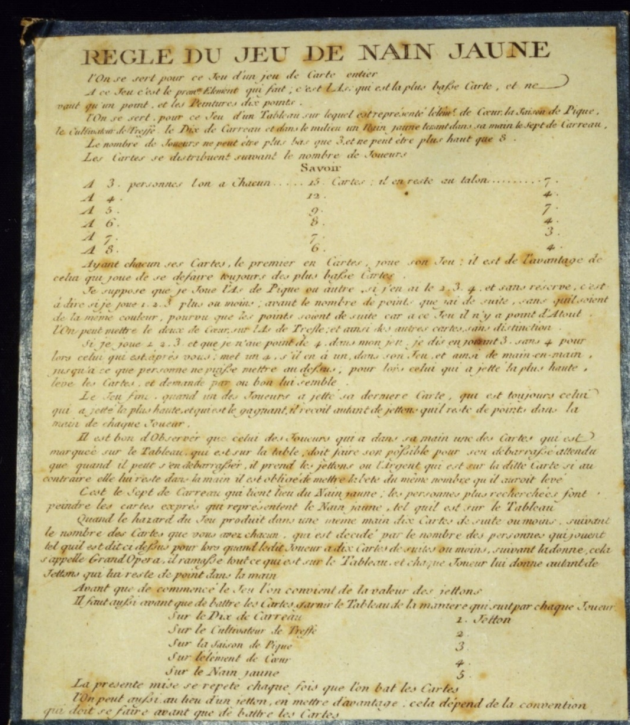 REGLE DU JEU DE NAIN JAUNE
l'On se sert pour ce Jeu d'un jeu de Carte entier
A ce Jeu c'est le prem.r Element qui fait ; c'est l'As, qui est la plus basse Carte, et ne
vaut qu'un point, et les Peintures dix points.
l'On se sert, pour ce Jeu d'un Tableau sur lequel est representé de Cœur, la Saison de Pique,
le Cultivateur de Treffle, le Dix de Carreau et dans le milieu un Nain jaune tenant dans sa main le Sept de Carreau,
Le nombre de Joueurs ne peut être plus bas que 3. et ne peut être plus haut que 8.
Les Cartes se distribuent suivant le nombre de Joueurs
Savoir
A 3. personnes l'on a Chacun..... 15 Cartes ; il en reste au talon.......... 7.
A 4. 12. 4.
A 5. 9. 7
A 6. 8. 4.
A 7. 7. 3.
A 8. 6. 4.
Ayant chacun ses Cartes, le premier en Cartes, joue son Jeu ; il est de l'avantage de
celui qui joue de se defaire toujours des plus basse Cartes.
Je suppose que je Joue l'As de Pique ou autre, si j'en ai le 2. 3. 4. et sans reserve, c'est
à dire si je joue 1. 2. 3. plus ou moins ; ayant le nombre de points que j'ai de suite, sans qu'il soient
de la même couleur, pourvu que les points soient de suite car a ce Jeu il n'y a point d'Atout
l'On peut mettre le deux de Cœur, sur l'As de Trefle ; et ainsi des autres cartes, sans distinction
Si je joue 1. 2. 3. et que je n'aie point de 4. dans mon jeu, je dis en jouant 3. sans 4 pour
lors celui qui est après vous, met un 4. s'il en à un, dans son Jeu, et ainsi de main en main,
jusqu'à ce que personne ne puisse mettre au dessus, pour lors celui qui a jetté la plus haute,
leve les Cartes, et demande par ou bon lui semble
Le Jeu finit quand un des Joueurs a jetté sa derniere Carte, qui est toujours celui
qui a jetté le plus haute, et qui est le gagnant, il reçoit autant de jettons qu'il reste de points dans la
main de chaque Joueur.
Il est bon d'Observer que celui des Joueurs qui a dans sa main une des Cartes qui est
marquée sur le Tableau, qui est sur la table, doit faire son possible pour son debarrassé attendu
que quand il peut s'en debarrasser, il prend les jettons ou l'Argent qui est sur la ditte Carte si au
contraire elle lui reste dans la main il est obligé de mettre la bete du même nombre qu'il auroit levé
C'est le Sept de Carreau qui tient lieu du Nain jaune, les personnes plus recherchées font
peindre les cartes exprès qui representent le Nain jaune, tel qu'il est sur le Tableau
Quand le hazard du Jeu produit dans une même main dix Cartes de suite ou moins, suivant
le nombre des Cartes que vous avez chacun, qui est decidé par le nombre des personnes qui jouent
tel qu'il est dit ci dessus pour lors quand ledit Joueur a dix Cartes de suites ou moins, suivant la donne, cela
s'appelle Grand Opera, il ramasse tout ce qui est sur le Tableau, et chaque Joueur lui donne autant de
Jettons qui lui reste de point dans la main
Avant que de commencé le Jeu l'on convient de la valeur des jettons
Il faut aussi avant que de battre les Cartes garnir le Tableau de la maniere qui suit par chaque Joueur
Sur le Dix de Carreau 1. Jetton
Sur le Cultivateur de Treffle 2
Sur la Saison de Pique 3
Sur l'element de Cœur 4.
Sur le Nain jaune 5
La presente mise se repete chaque fois que l'on bat les Cartes
l'On peut aussi au lieu d'un jetton, en mettre d'avantage, cela dépend de la convention
qui doit se faire avant que de battre les Cartes